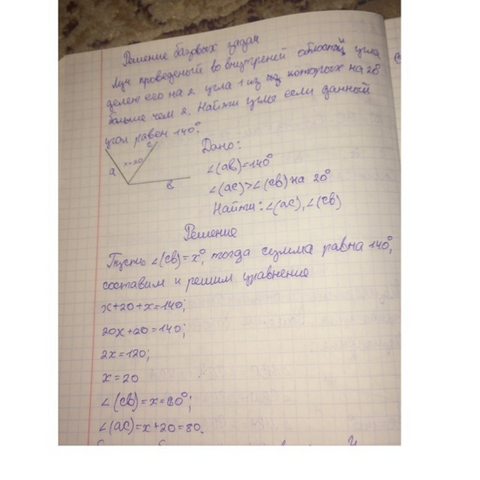 Решение базовых задач
Луч проведеный во внутреней области угла
делет его на 2 угла 1 из которых на 20
больше чем 2. Найти углы если данный
угол равен 140°.
c
a
x+20
в
Дано:
∠(ав)=140°
∠(ac)>∠(cв) на 20°
Найти: ∠(ac), ∠(cв)
Решение
Пусть ∠(cв)=x°, тогда сумма равна 140°,
составим и решим уравнение
x+20+x=140;
20x+20=140;
2x=120;
x=20
∠(cв)=x=60°;
∠(ac)=x+20=80.